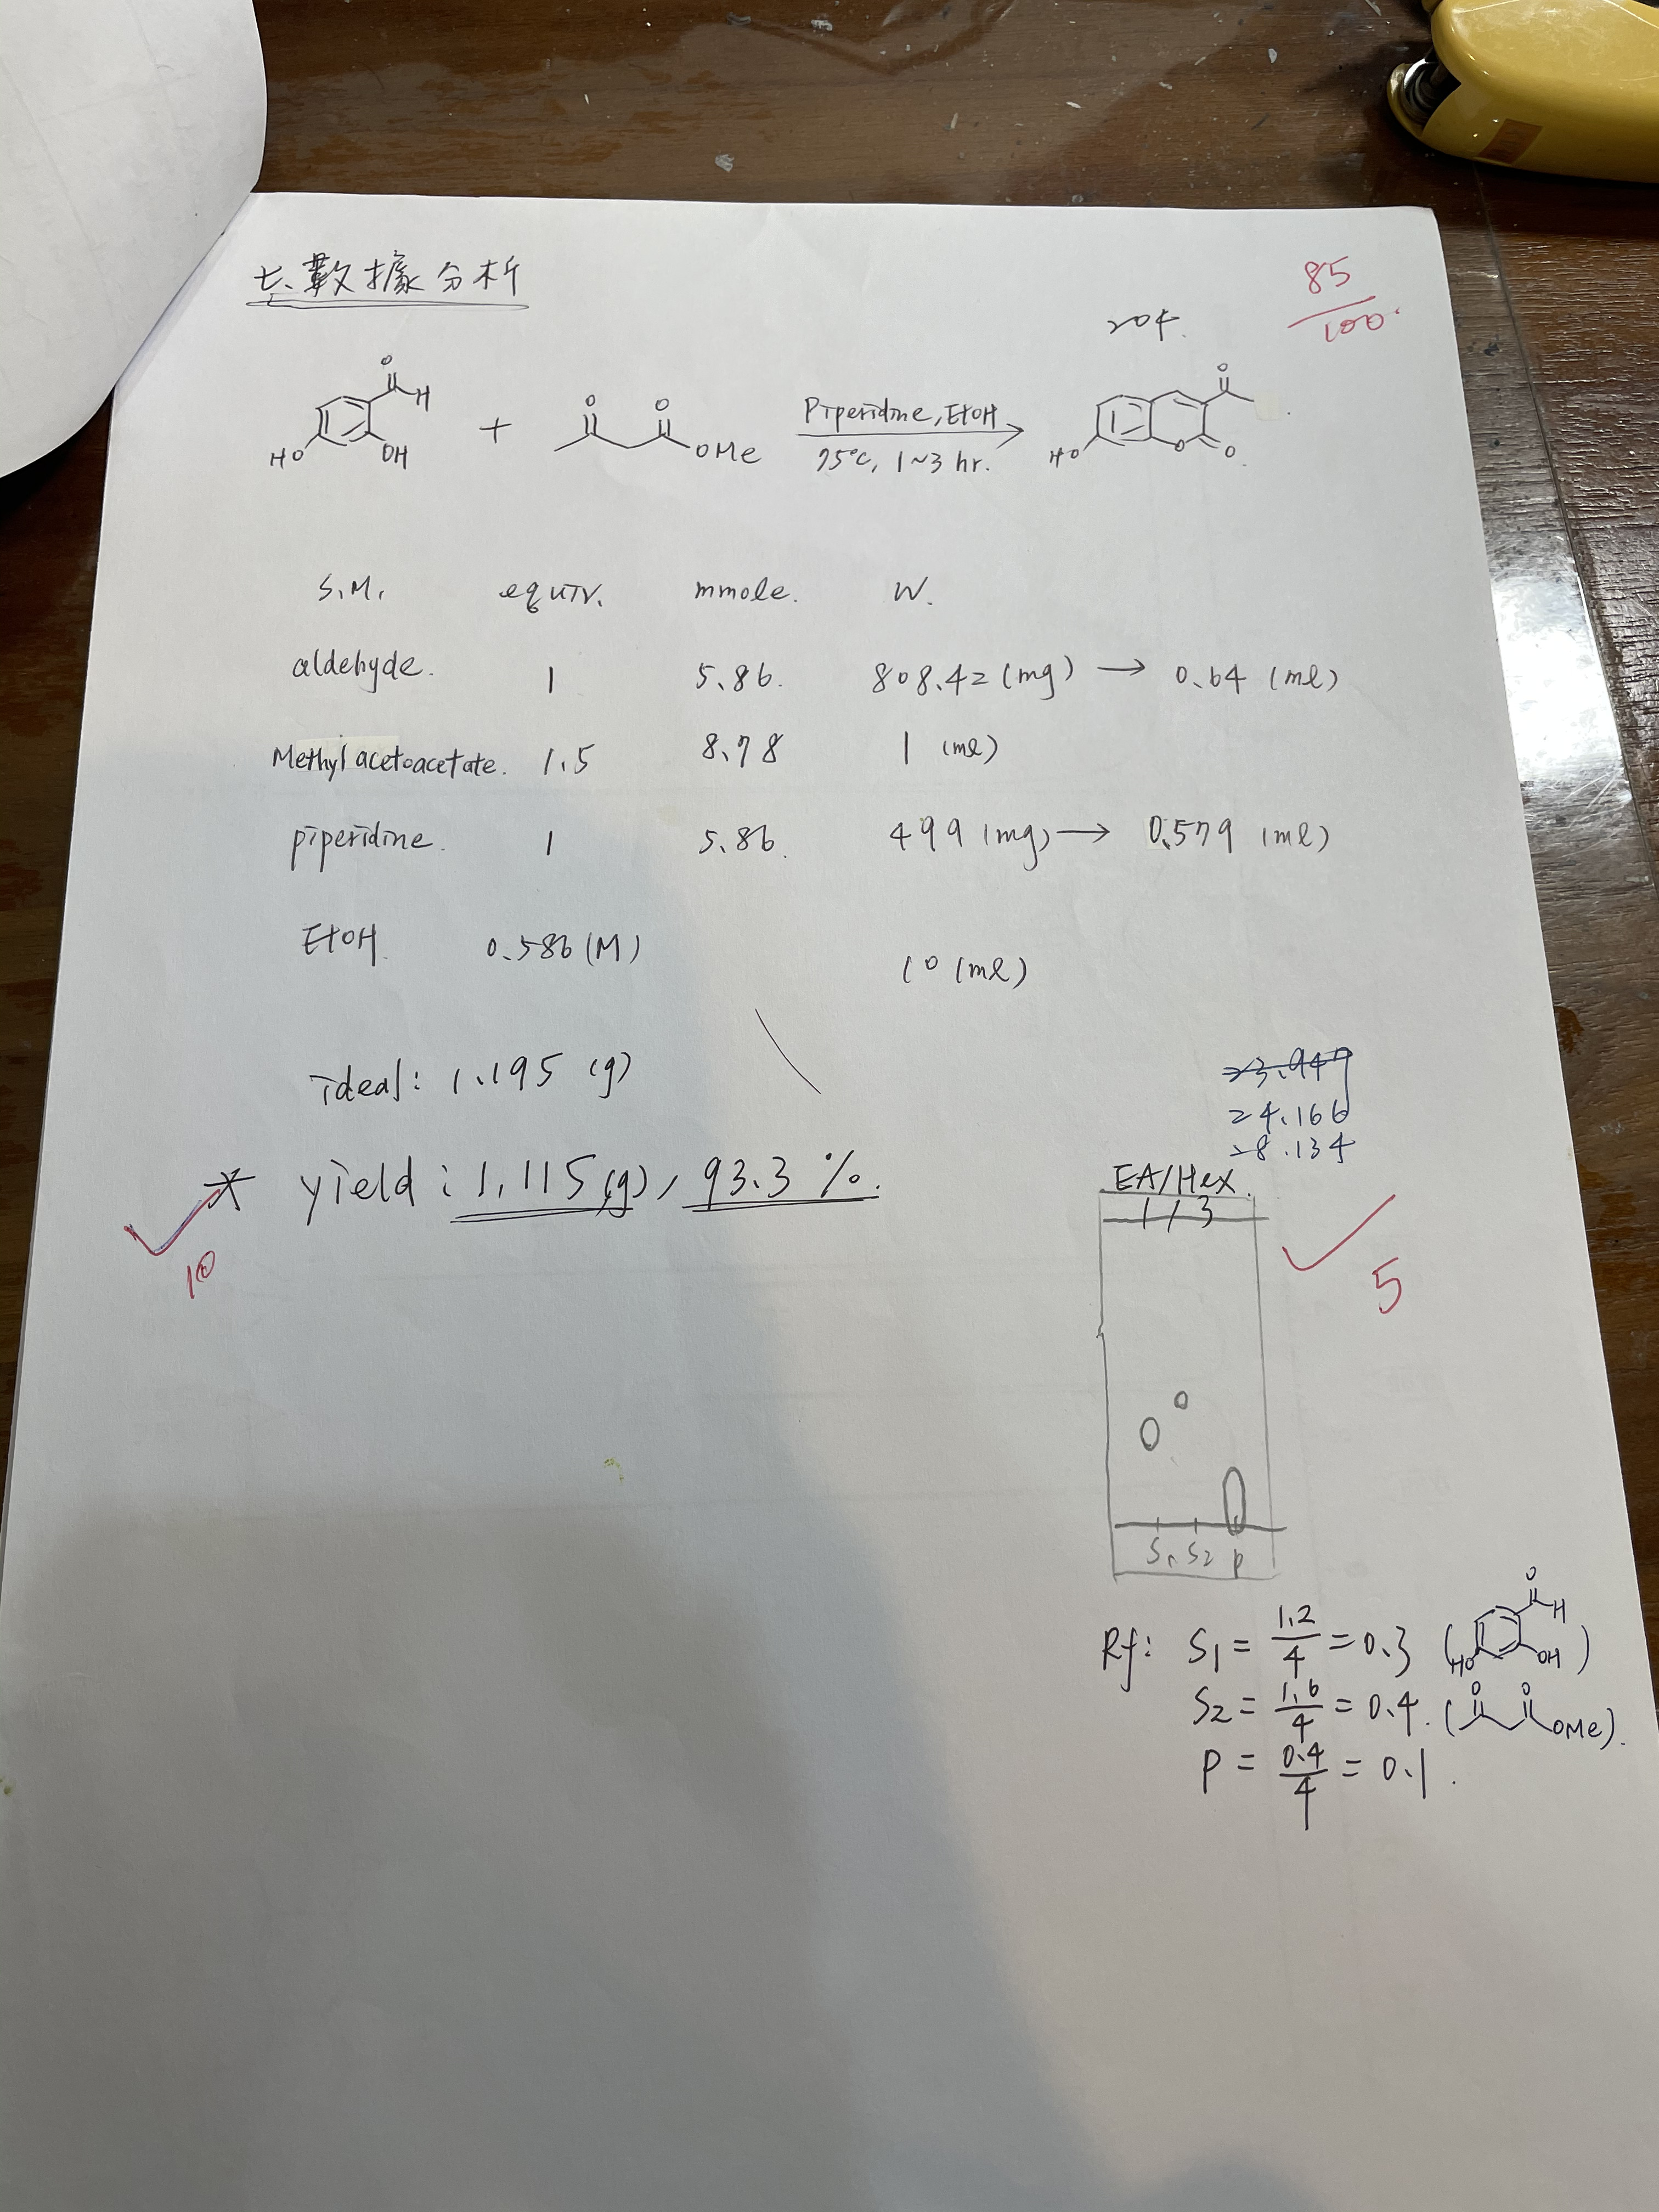 七、數據分析
85
100
204.
O
H
HO
OH
+
O
O
OMe
Piperidine, EtOH
75°C, 1~3 hr.
O
HO
O
O
S.M. equiv. mmole. W.
aldehyde. 1 5.86. 808.42 (mg) → 0.64 (ml)
Methyl acetoacetate. 1.5 8.78 1 (ml)
piperidine. 1 5.86. 499 (mg) → 0.579 (ml)
EtOH. 0.586 (M) 10 (ml)
ideal: 1.195 (g)
24.166
28.134
* yield: 1.115 (g), 93.3 %.
10
EA/Hex.
1/3
5
S1 S2 P
Rf: S1 = 1.2/4 = 0.3 (
O
H
HO
OH
)
S2 = 1.6/4 = 0.4. (
O
O
OMe).
P = 0.4/4 = 0.1.